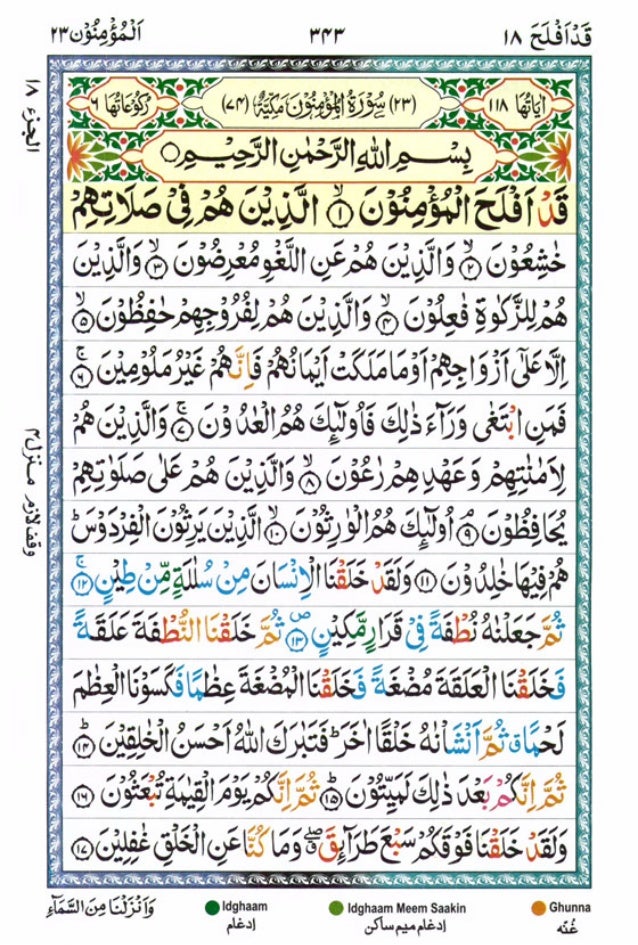 قَدْ اَفْلَحَ ١٨
٣٤٣
اَلْمُؤْمِنُوْن ٢٣
اٰيَاتُهَا ١١٨
(٢٣) سُوْرَةُ الْمُؤْمِنُوْنَ مَكِّيَّةٌ (٧٤)
رُكُوْعَاتُهَا ٦
بِسْمِ اللّٰهِ الرَّحْمٰنِ الرَّحِيْمِ
قَدْ اَفْلَحَ الْمُؤْمِنُوْنَ ۙ﴿١﴾ الَّذِيْنَ هُمْ فِيْ صَلَاتِهِمْ
خٰشِعُوْنَ ۙ﴿٢﴾ وَالَّذِيْنَ هُمْ عَنِ اللَّغْوِ مُعْرِضُوْنَ ۙ﴿٣﴾ وَالَّذِيْنَ
هُمْ لِلزَّكٰوةِ فٰعِلُوْنَ ۙ﴿٤﴾ وَالَّذِيْنَ هُمْ لِفُرُوْجِهِمْ حٰفِظُوْنَ ۙ﴿٥﴾
اِلَّا عَلٰٓى اَزْوَاجِهِمْ اَوْ مَا مَلَكَتْ اَيْمَانُهُمْ فَاِنَّهُمْ غَيْرُ مَلُوْمِيْنَ ۚ﴿٦﴾
فَمَنِ ابْتَغٰى وَرَآءَ ذٰلِكَ فَاُولٰٓئِكَ هُمُ الْعٰدُوْنَ ۚ﴿٧﴾ وَالَّذِيْنَ هُمْ
لِاَمٰنٰتِهِمْ وَعَهْدِهِمْ رٰعُوْنَ ۙ﴿٨﴾ وَالَّذِيْنَ هُمْ عَلٰى صَلَوٰتِهِمْ
يُحَافِظُوْنَ ۘ﴿٩﴾ اُولٰٓئِكَ هُمُ الْوٰرِثُوْنَ ۙ﴿١٠﴾ الَّذِيْنَ يَرِثُوْنَ الْفِرْدَوْسَ ؕ
هُمْ فِيْهَا خٰلِدُوْنَ ﴿١١﴾ وَلَقَدْ خَلَقْنَا الْاِنْسَانَ مِنْ سُلٰلَةٍ مِّنْ طِيْنٍ ۚ﴿١٢﴾
ثُمَّ جَعَلْنٰهُ نُطْفَةً فِيْ قَرَارٍ مَّكِيْنٍ ۪﴿١٣﴾ ثُمَّ خَلَقْنَا النُّطْفَةَ عَلَقَةً
فَخَلَقْنَا الْعَلَقَةَ مُضْغَةً فَخَلَقْنَا الْمُضْغَةَ عِظٰمًا فَكَسَوْنَا الْعِظٰمَ
لَحْمًا ۗ ثُمَّ اَنْشَاْنٰهُ خَلْقًا اٰخَرَ ؕ فَتَبٰرَكَ اللّٰهُ اَحْسَنُ الْخٰلِقِيْنَ ؕ﴿١٤﴾
ثُمَّ اِنَّكُمْ بَعْدَ ذٰلِكَ لَمَيِّتُوْنَ ؕ﴿١٥﴾ ثُمَّ اِنَّكُمْ يَوْمَ الْقِيٰمَةِ تُبْعَثُوْنَ ﴿١٦﴾
وَلَقَدْ خَلَقْنَا فَوْقَكُمْ سَبْعَ طَرَآئِقَ ۖ وَمَا كُنَّا عَنِ الْخَلْقِ غٰفِلِيْنَ ﴿١٧﴾
الجزء ١٨
وقف لازم منزل ٤
وَاَنْزَلْنَا مِنَ السَّمَآءِ
Idghaam
إدغام
Idghaam Meem Saakin
إدغام ميم ساكن
Ghunna
غُنّه